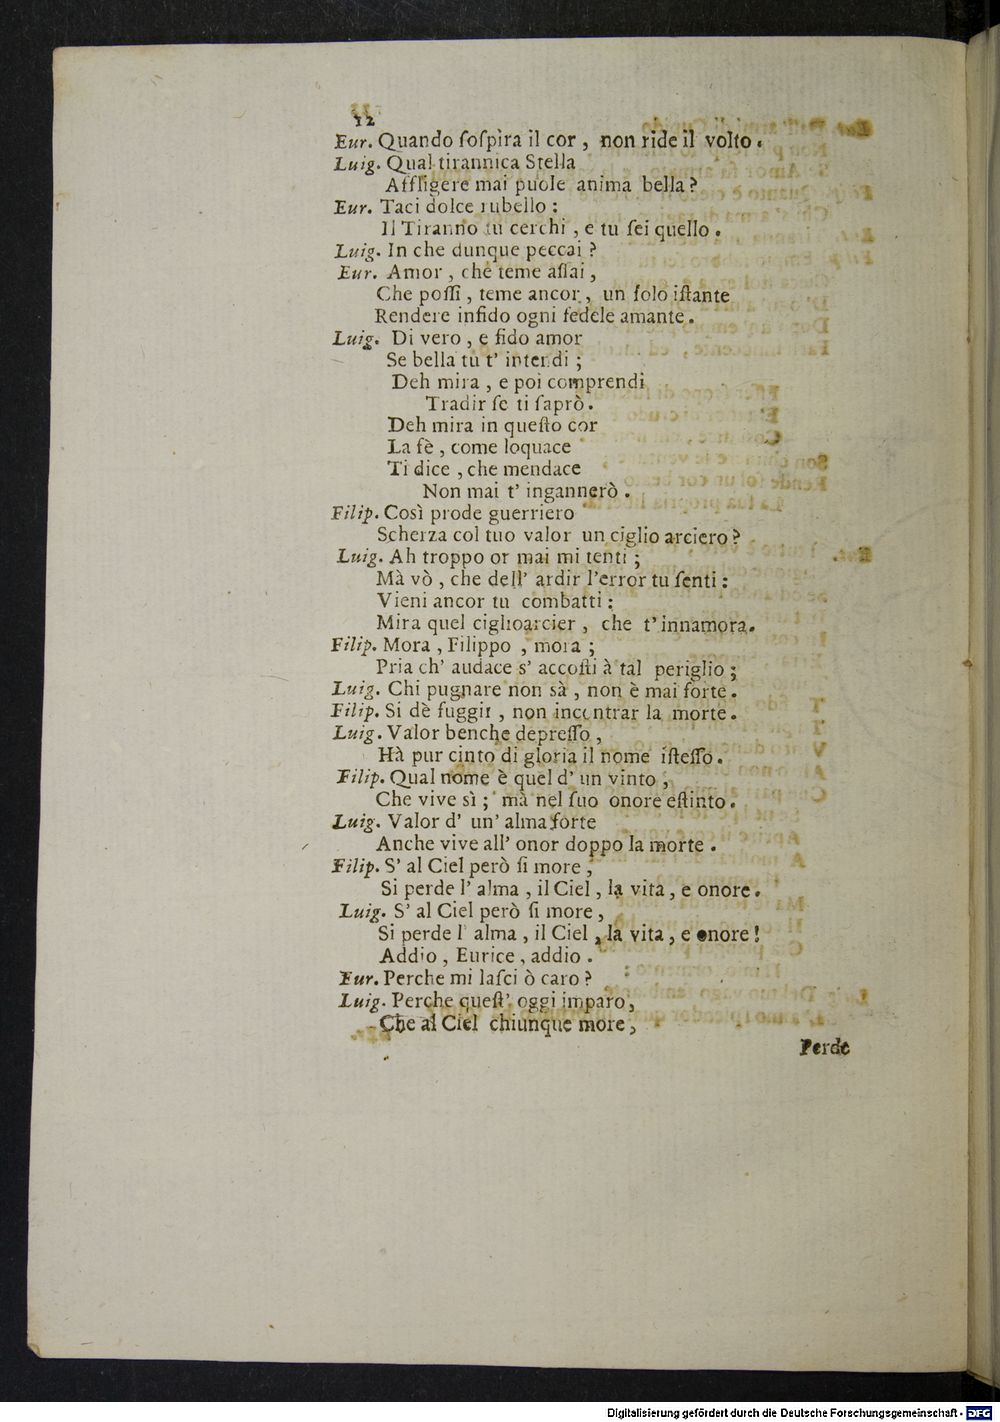 12
Eur. Quando ſoſpira il cor , non ride il volto .
Luig. Qual tirannica Stella
Affligere mai puole anima bella ?
Eur. Taci dolce rubello :
Il Tiranno tu cerchi , e tu ſei quello .
Luig. In che dunque peccai ?
Eur. Amor , che teme aſſai ,
Che poſſi , teme ancor , un ſolo iſtante
Rendere infido ogni fedele amante .
Luig. Di vero , e fido amor
Se bella tu t' intendi ;
Deh mira , e poi comprendi
Tradir ſe ti ſaprò .
Deh mira in queſto cor
La fè , come loquace
Ti dice , che mendace
Non mai t' ingannerò .
Filip. Così prode guerriero
Scherza col tuo valor un ciglio arciero ?
Luig. Ah troppo or mai mi tenti ;
Mà vò , che dell' ardir l'error tu ſenti :
Vieni ancor tu combatti :
Mira quel ciglioarcier , che t' innamora .
Filip. Mora , Filippo , mora ;
Pria ch' audace s' accoſti à tal periglio ;
Luig. Chi pugnare non sà , non è mai forte .
Filip. Si dè fuggir , non incontrar la morte .
Luig. Valor benche depreſſo ,
Hà pur cinto di gloria il nome iſteſſo .
Filip. Qual nome è quel d' un vinto ,
Che vive sì ; mà nel ſuo onore eſtinto .
Luig. Valor d' un' alma forte
Anche vive all' onor doppo la morte .
Filip. S' al Ciel però ſi more ,
Si perde l' alma , il Ciel , la vita , e onore .
Luig. S' al Ciel però ſi more ,
Si perde l' alma , il Ciel , la vita , e onore !
Addio , Eurice , addio .
Eur. Perche mi laſci ò caro ?
Luig. Perche queſt' oggi imparo ,
Che al Ciel chiunque more ,
Perde
Digitalisierung gefördert durch die Deutsche Forschungsgemeinschaft - DFG